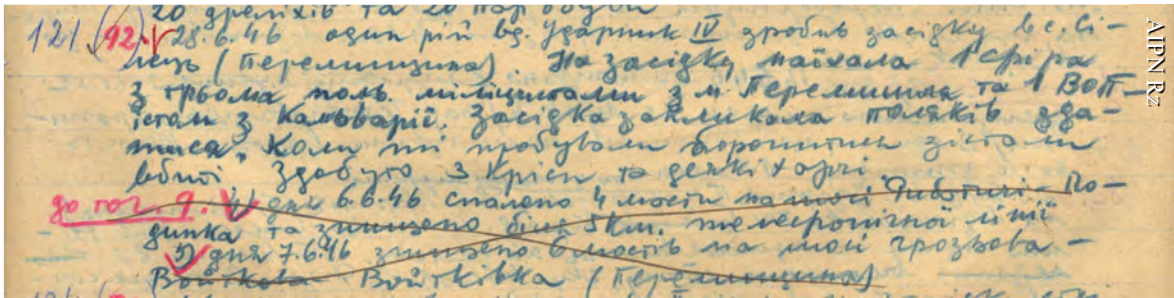 20 дреліхів та 20 пар
121 (92. 28.6.46 один рій вд. Ударник IV зробив засідку в с. Сі-
лець (Перемищина) На засідку наїхала 1 фіра
з трьома поль. міліцистами з м. Перемишля та 1 ВОП-
істом з Кальварії. Засідка закликала поляків зда-
тися, Коли ті пробували боронитися зістали
вбиті Здобуто 3 кріси та деякі харчі
до точ. 9. 4) дня 6.6.46 спалено 4 мости на шосі По-
динка та знищено біля 5 км. телефонічної лінії
5) дня 7.6.46 знищено 6 мостів на шосі Грозьова -
Войткова Войтківка (Перемищина)
AIPN Rz